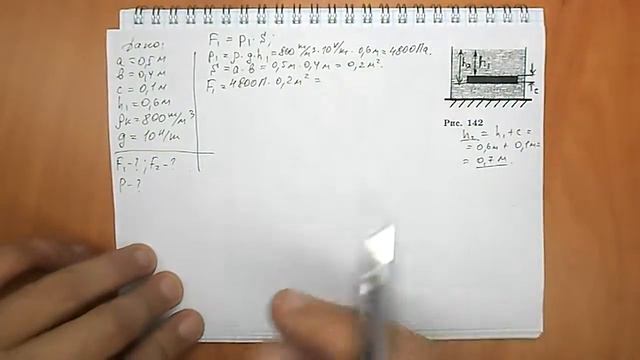 Дано:
a = 0,5 м
b = 0,4 м
c = 0,1 м
h₁ = 0,6 м
ρк = 800 кг/м³
g = 10 Н/кг
F₁ - ? ; F₂ - ?
P - ?
F₁ = p₁ · S;
p₁ = ρ · g · h₁ = 800 кг/м³ · 10 Н/кг · 0,6 м = 4800 Па.
S = a · b = 0,5 м · 0,4 м = 0,2 м².
F₁ = 4800 П · 0,2 м² =
h₂ h₁
c
Рис. 142
h₂ = h₁ + c =
= 0,6 м + 0,1 м =
= 0,7 м.